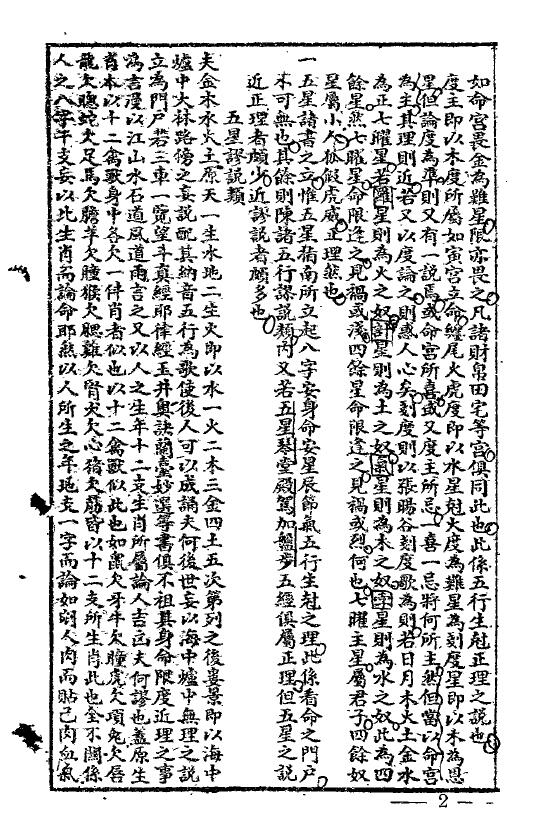 如命宮畏金為難星限亦畏之凡諸財帛田宅等宮俱同此也此係五行生尅正理之說也
度主即以木度所屬如寅宮立命纏尾火虎度即以水星尅火度為難星為刻度星即以木為恩
星但論度為準則又有一說焉或命宮所喜或又度主所忌一喜一忌將何所主然但當以命宮
為主其理則近若又以度論之則惑人心矣刻度則以張賜谷刻度歌為則若日月木火土金水
為正七曜星若羅星則為火之奴計星則為土之奴氣星則為木之奴孛星則為水之奴此為四
餘星然七曜星命限逢之見禍或淺四餘星命限逢之見禍或烈何也七曜主星屬君子四餘奴
星屬小人狐假虎威正理然也
一五星諸書之立惟五星指南所立起八字安身命安星辰節氣五行生尅之理此係看命之門戶
不可無也其餘則陳諸五行謬說類內又若五星琴堂殿駕加盤步五經俱屬正理但五星之說
近正理者頗少近謬說者頗多也
五星謬說類
夫金木水火土原天一生水地二生火即以水一火二木三金四土五次第列之後妄景即以海中
爐中大林路傍之妄說配其納音五行為歌使後人可以成誦夫何後世妄以海中爐中無理之說
立為門戶若三車一覽望斗真經耶律經玉井奧訣蘭臺妙選等書俱不祖其身命限度近理之事
為言漫以江山水石道風道雨言之又以人之生年十二支生肖所屬論人吉凶夫何謬也蓋原生
肖本以十二禽獸身中各欠一件肖者似也以十二禽獸似此也如鼠欠牙牛欠膧虎欠項兔欠唇
龍欠聰蛇欠足馬欠膽羊欠瞳猴欠腮雞欠腎犬欠心猪欠筋皆以十二支所生肖此也全不關係
人之八字干支妄以此生肖而論命耶然以人所生之年地支一字而論如剜人肉而貼己肉血氣
2